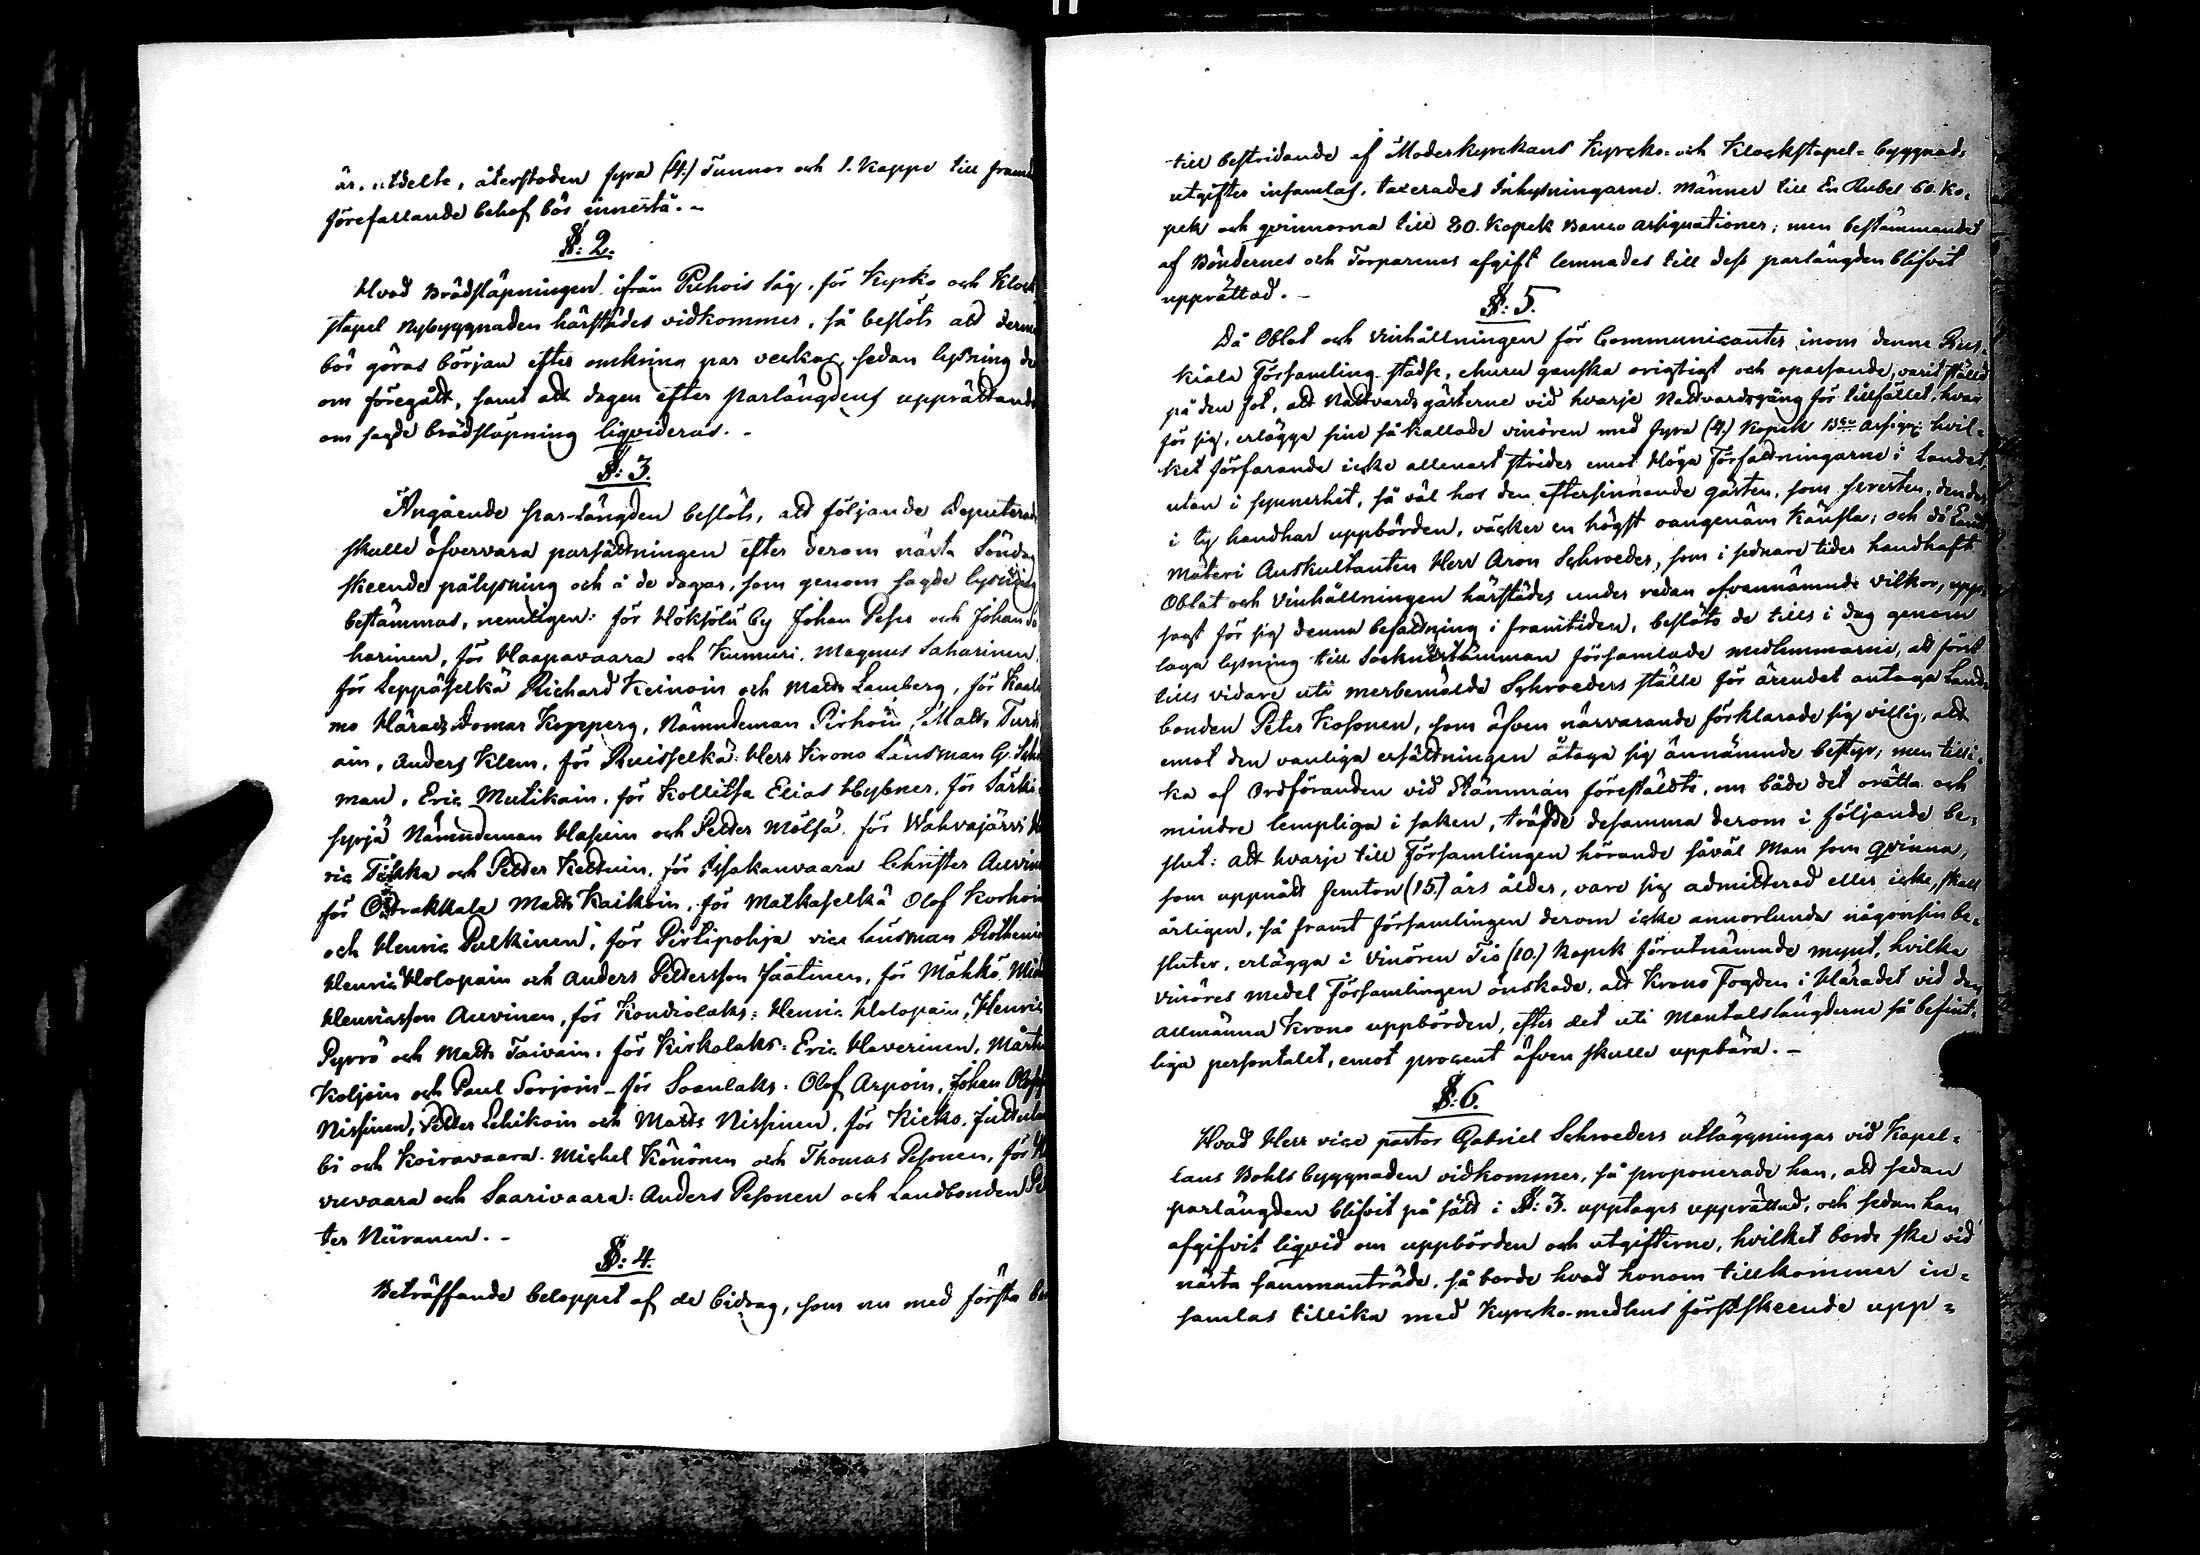 är utdelte, återstoden fyra (4.) Tunnor och 1. Kappe till
förefallande behof bör innestå. -
§: 2.
Hvad Brädsläpningen ifrån Puhois såg, för Kyrko och
stapel Nybyggnaden härstädes vidkommer, så beslöts att
bör göras början efter omkring par veckor, sedan lysning
om föregått, samt att dagen efter parlängdens upprättande
om sagde brädsläpning liqvideras. -
§: 3.
Angående par-Längden beslöts, att följande Deputerade
skulle öfvervara parsättningen efter derom nästa Söndag
skeende pålysning och å de dagar, som genom sagde lysning
bestämmas, nemligen: för Höksölä by Johan Pesse och Johan
harinen, för Haapavaara och Kumuri, Magnus Saharinen,
för Leppäselkä Richard Keinoin och Matts Lamberg, för
mo Härads Domar Kopperg, Nämndeman Pirhoin, Matts
ain, Anders Klem, för Ruisselkä: Herr Krono Länsman G.
man, Eric Mutikain, för Kollitsa Elias Hybner, för Särki
syrjä Nämndeman Hasuin och Petter Mölsä, för Wahvajärvi
ric Tikka och Petter Kettuin, för Issakanvaara Christer
för Ostrakkala Matts Kaikoin, för Matkaselkä Olof
och Henric Pulkinen, för Pirtipohja vice Länsman
Henric Holopain och Anders Pettersson Jäätinen, för Möhkö,
Henricsson Auvinen, för Kondiolaks: Henric Holopain, Henric
Pyrrö och Matts Taivain, för Kirkolaks: Eric Haverinen,
Koljoin och Paul Sorjoin - för Soanlaks: Olof Arpoin, Johan
Nissinen, Petter Lehikoin och Matts Nissinen, för Kieko,
bi och Koiravaara. Michel Könönen och Thomas Pesonen, för
vuvaara och Saarivaara: Anders Pesonen och Landbonden
ter Niiranen. -
§: 4.
Beträffande beloppet af de bidrag, som nu med första
till bestridande af Moderkyrkans Kyrcko- och Klockstapel- byggnads
utgifter insamlas, taxerades Inhysningarne. Männer till En Rubel 60. Ko-
pek och qvinnorna till 80. Kopek Banco Assignationer; men bestämmandet
af Böndernes och Torparenes afgift lemnades till dess parlängden blifvit
upprättad. -
§: 5.
Då Oblat och Vinhållningen för Communicanter inom denne Rus-
kiala Församling städse, ehuru ganska origtigt och opassande, varit ställd
på den fot, att Nattvards gästerne vid hvarje Nattvardsgång för tillfället, hvar
för sig, erlägga sine så kallade vinören med fyra (4.) Kopek Bco Assign: hvil-
ket förfarande icke allenast strider emot Höga Författningarne i Landet,
utan i synnerhet, så väl hos den eftersinnande gästen, som
i by handhar uppbörden, väcker en högst oangenäm känsla; och då
Mäteri Auskultanten Herr Aron Schroeder, som i sednare tider handhaft
Oblat och Vinhållningen härstädes under redan ofvannämnde vilkor, upp-
sagt för sig denna befattning i framtiden, beslöts de till i dag genom
laga lysning till Socknestämman församlade medlemmarne, att först
tills vidare uti merbemälde Schroeders ställe för ärendet antaga Land-
bonden Peter Kosonen, som äfven närvarande förklarade sig villig, att
emot den vanliga ersättningen åtaga sig ännämnde bestyr; men tilli-
ka af Ordföranden vid Stämman föreställdts, om både det orätta och
mindre lempliga i saken, träffade desamma derom i följande be-
slut: att hvarje till Församlingen hörande såväl Man som Qvinna,
som uppnått femton (15.) års ålder, vare sig admitterad eller icke, skall
årligen, så framt församlingen derom icke annorlunda någonsin be-
sluter, erlägga i Vinören Tio (10.) Kopek förutnämnde mynt, hvilka
vinöres medel Församlingen önskade, att Krono Fogden i Häradet vid den
Allmänna Krono uppbörden, efter det uti Mantalslängderne så befint-
liga personalet, emot procent äfven skulle uppbära. -
§: 6.
Hvad Herr vice pastor Gabriel Schroeders utläggningar vid Kapel-
lans Bohls byggnaden vidkommer, så proponerade han, att sedan
parlängden blifvit på sätt i §: 3. upptages upprättad, och sedan han
afgifvit liqvid om uppbörden och utgifterne, hvilket borde ske vid
nästa sammanträde, så borde hvad honom tillkommer in-
samlas tillika med Kyrcko-medlens först skeende upp-